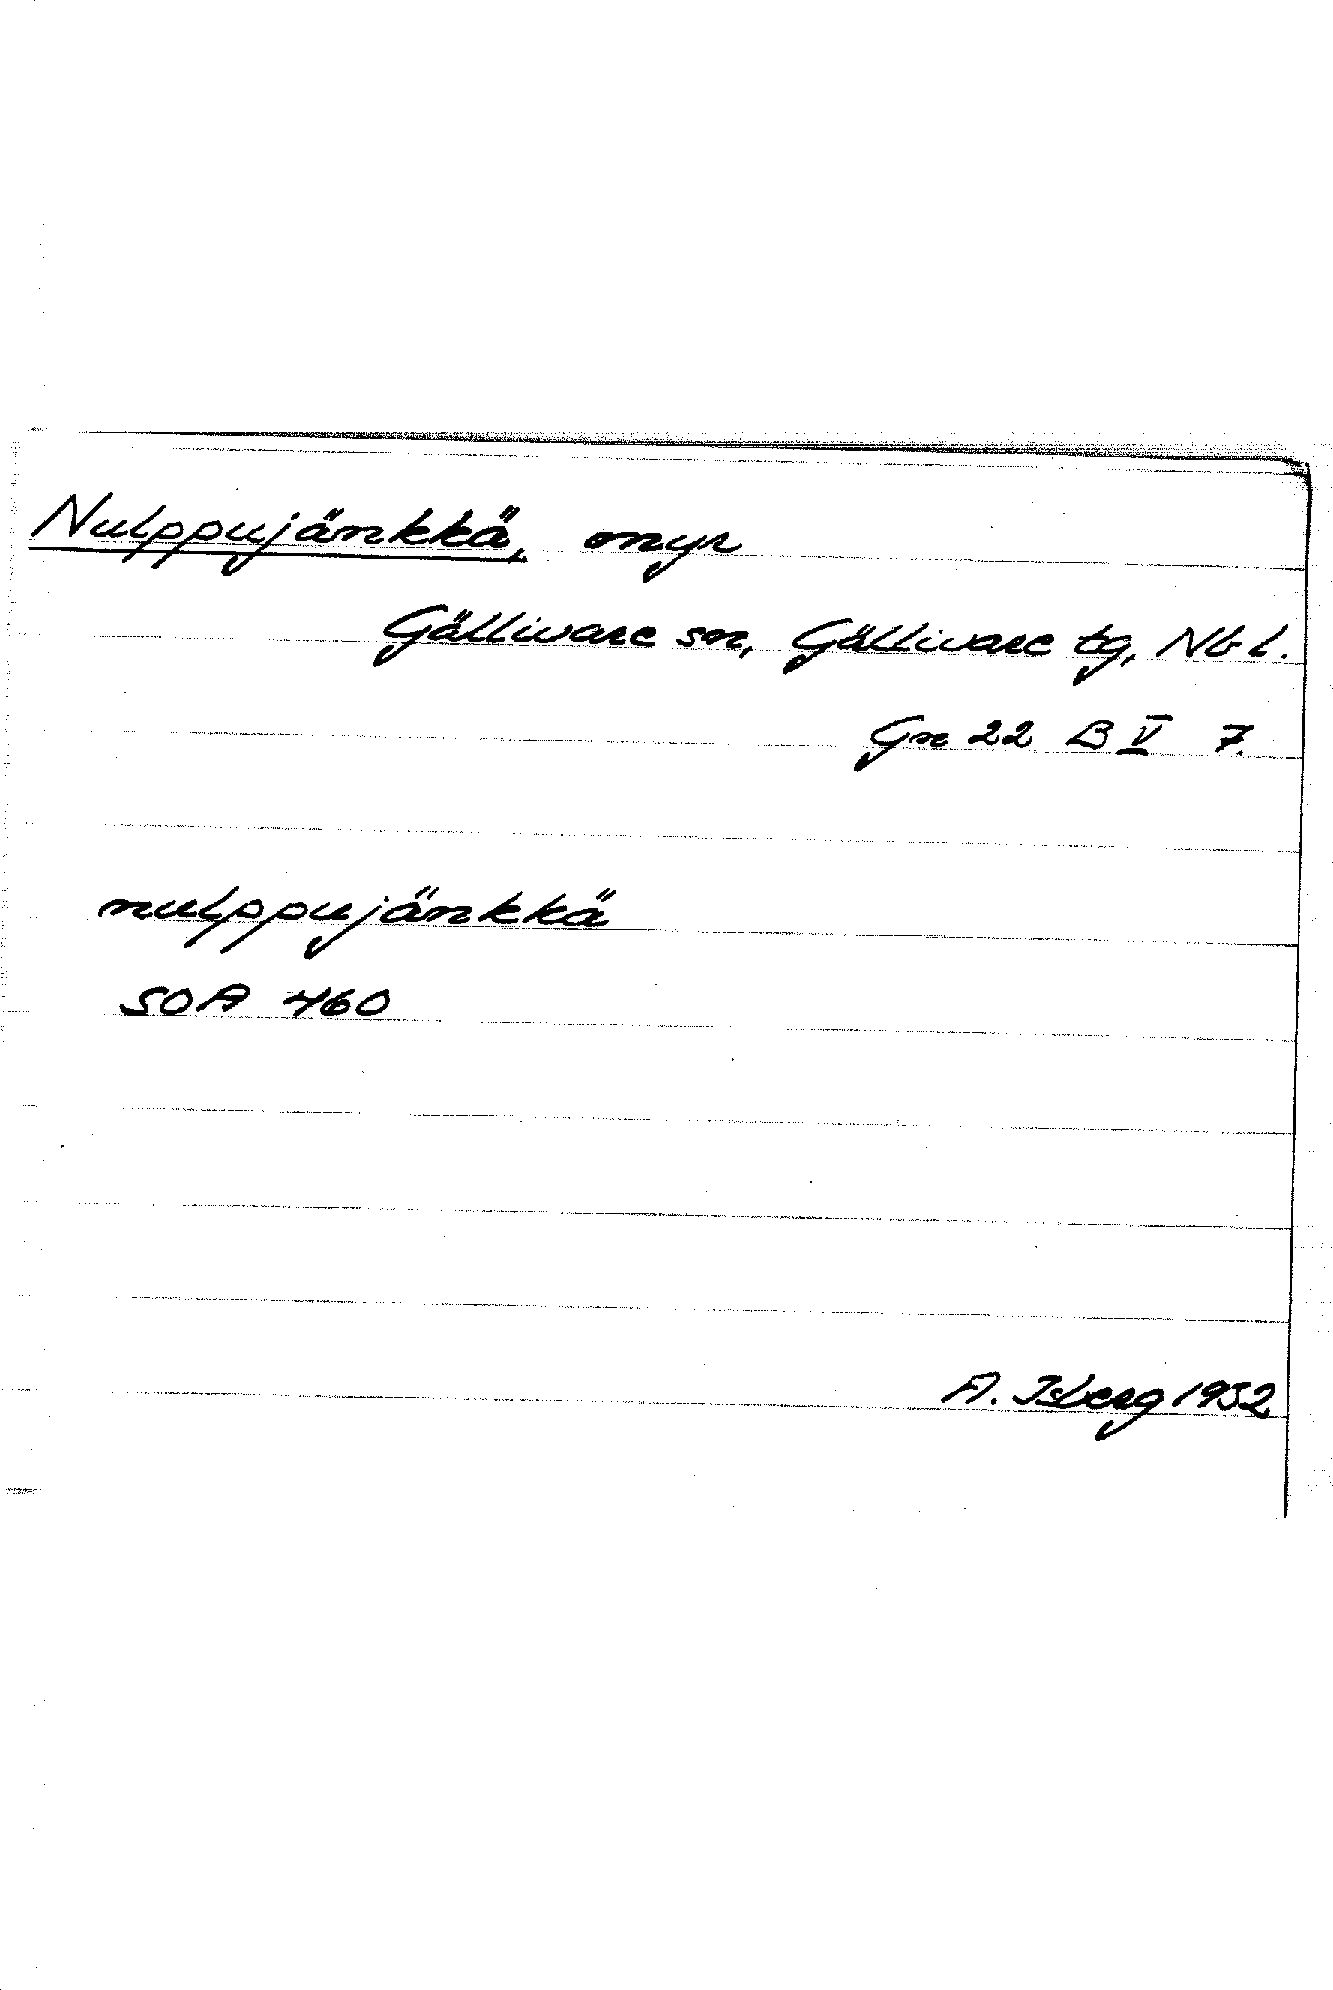 Nulppujänkkä, myr
Gällivare sn, Gällivare tg, Nb l.
Gn 22 B V 7.
nulppujänkkä
SOA 460
A. Isberg 1952